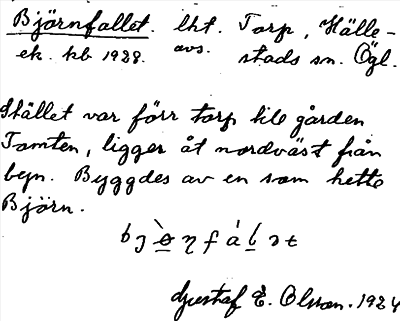 Björnfallet. lht. Torp, Hälle-
ek. kb 1928. avs. stads sn. Ögl.
Stället var förr torp till gården
Tomten, ligger åt nordväst från
byn. Byggdes av en som hette
Björn.
Gustaf E. Olsson. 1924